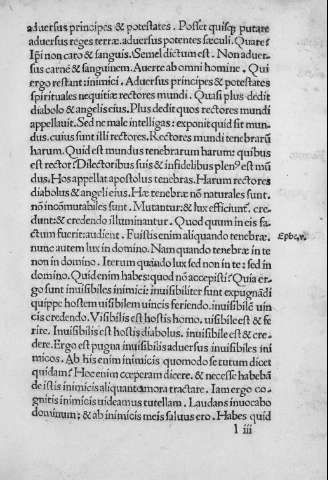 aduersus principes & potestates. Posset quisq; putare
aduersus reges terræ. aduersus potentes sæculi. Quare?
Ipsi non caro & sanguis. Semel dictum est. Non aduer-
sus carnẽ & sanguinem. Auerte ab omni homine. Qui
ergo restant inimici. Aduersus principes & potestates
spirituales nequitiæ rectores mundi. Quasi plus dedit
diabolo & angelis eius. Plus dedit quos rectores mundi
appellauit. Sed ne male intelligas: exponit quid sit mun-
dus. cuius sunt illi rectores. Rectores mundi tenebrarũ
harum. Quid est mundus tenebrarum harum: quibus
est rector? Dilectoribus suis & infidelibus plen⁹ est mũ
dus. Hos appellat apostolus tenebras. Harum rectores
diabolus & angeli eius. Hæ tenebræ nõ naturales sunt.
nõ incõmutabiles sunt. Mutantur: & lux efficiunť. cre-
dunt: & credendo illuminantur. Quod quum in eis fa-
ctum fuerit: audient. Fuistis enim aliquando tenebræ.
nunc autem lux in domino. Nam quando tenebræ in te
non in domino. Iterum quando lux sed non in te: sed in
domino. Quid enim habes: quod nõ accepisti? Quia er-
go sunt inuisibiles inimici: inuisibiliter sunt expugnãdi
quippe hostem uisibilem uincis feriendo. inuisibilẽ uin
cis credendo. Visibilis est hostis homo. uisibile est & fe
rire. Inuisibilis est hostis diabolus. inuisibile est & cre-
dere. Ergo est pugna inuisibilis aduersus inuisibiles ini
micos. Ab his enim inimicis quomodo se tutum dicet
quidam? Hoc enim cœperam dicere. & necesse habebã
de istis inimicis aliquanto mora tractare. Iam ergo co-
gnitis inimicis uideamus tutellam. Laudans inuocabo
dominum: & ab inimicis meis saluus ero. Habes quid
l iii
Ephe. v.